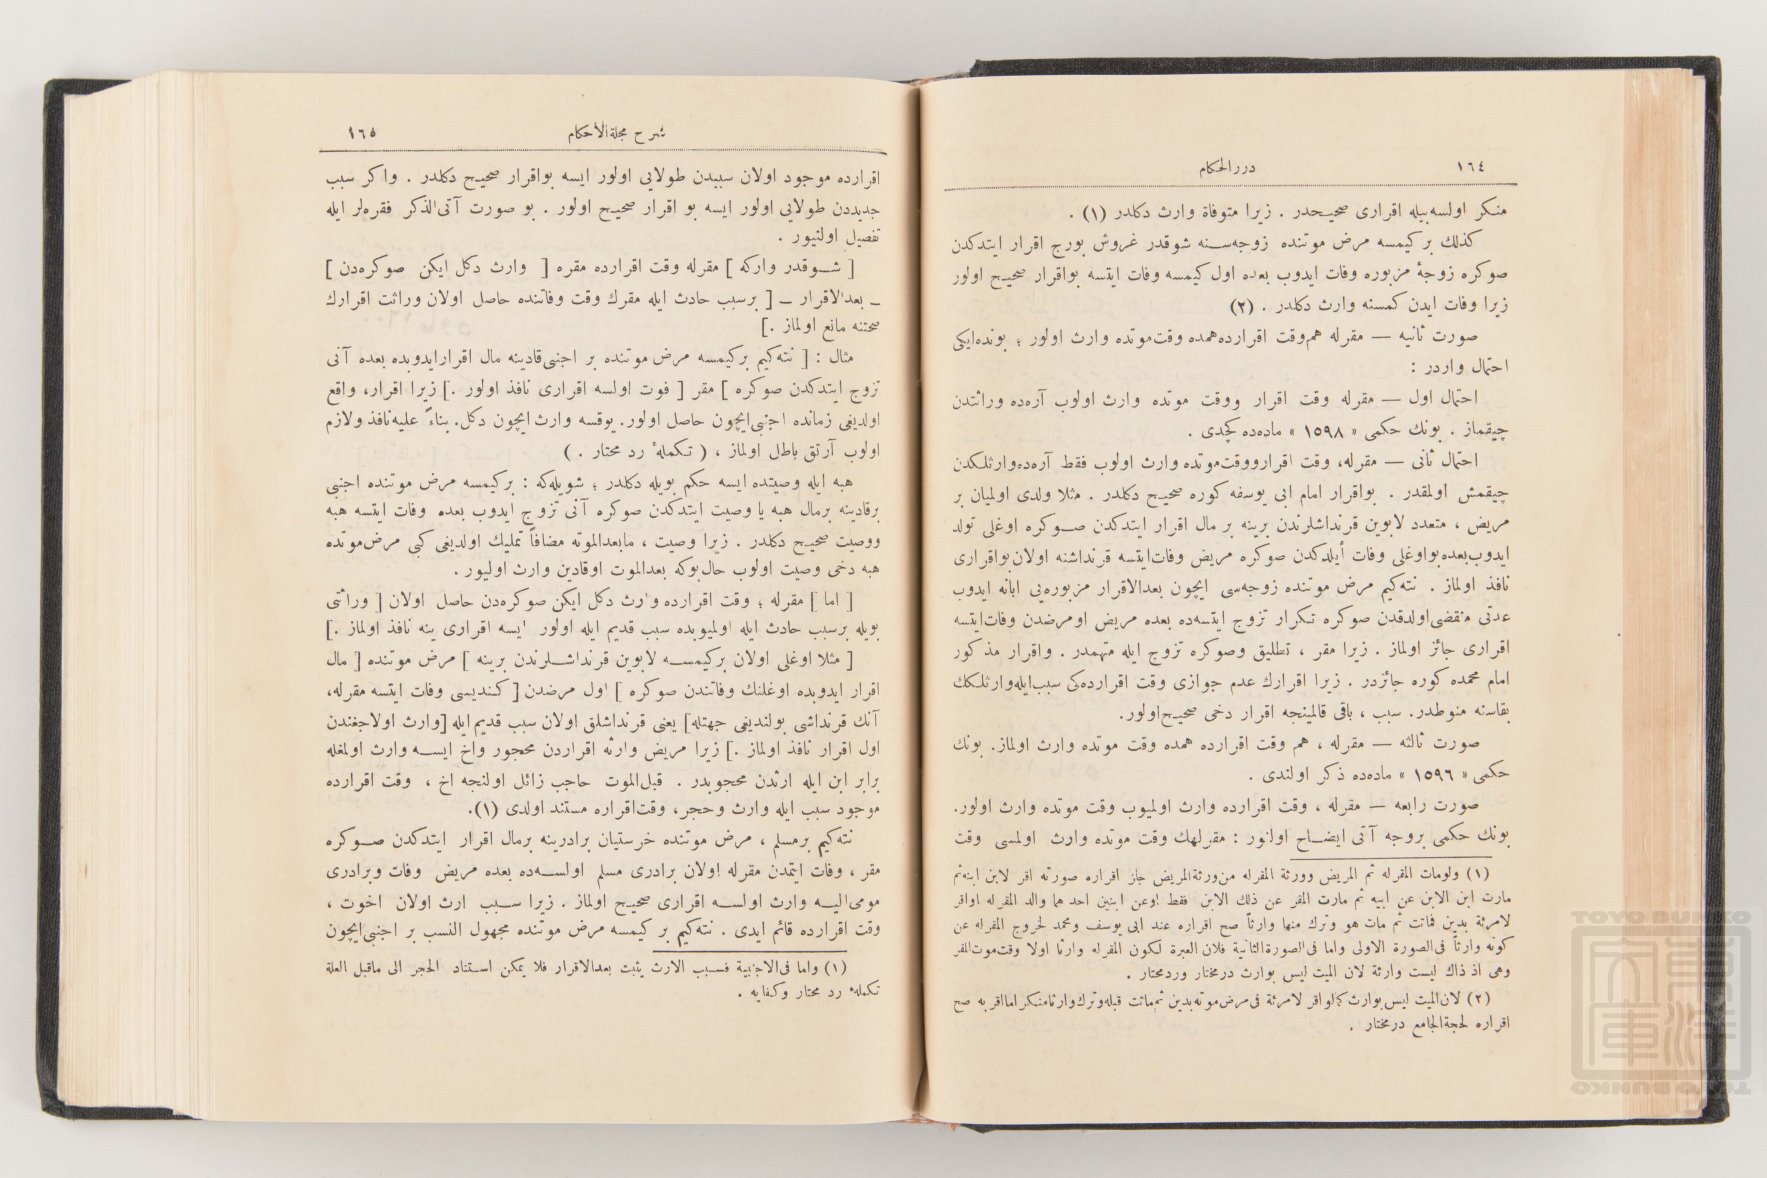 ١٦٤
دررالحكام
منكر اولسه بيله اقرارى صحيحدر . زيرا متوفاة وارث دكلدر (١) .
كذلك بر كيمسه مرض موتنده زوجه‌سنه شوقدر غروش بورج اقرار ايتدكدن
صوكره زوجهٔ مزبوره وفات ايدوب بعده اول كيمسه وفات ايتسه بواقرار صحيح اولور
زيرا وفات ايدن كمسنه وارث دكلدر . (٢)
صورت ثانيه — مقرله هم‌وقت اقرارده همده وقت‌موتده وارث اولور ؛ بونده‌ايكى
احتمال واردر :
احتمال اول — مقرله وقت اقرار ووقت موتده وارث اولوب آره‌ده وراثتدن
چيقماز . بونك حكمى « ١٥٩٨ » ماده‌ده كچدى .
احتمال ثانى — مقرله، وقت اقرارووقت‌موتده وارث اولوب فقط آره‌ده‌وارثلكدن
چيقمش اولمقدر . بواقرار امام ابى يوسفه كوره صحيح دكلدر . مثلا ولدى اولميان بر
مريض ، متعدد لابوين قرنداشلرندن برينه بر مال اقرار ايتدكدن صوكره اوغلى تولد
ايدوب‌بعده‌بواوغلى وفات أيلدكدن صوكره مريض وفات‌ايتسه قرنداشنه اولان‌بواقرارى
نافذ اولماز . نته‌كيم مرض موتنده زوجه‌سى ايچون بعدالاقرار مزبوره‌يى ابانه ايدوب
عدتى منقضى‌اولدقدن صوكره تكرار تزوج ايتسه‌ده بعده مريض اومرضدن وفات‌ايتسه
اقرارى جائز اولماز . زيرا مقر ، تطليق وصوكره تزوج ايله متهمدر . واقرار مذكور
امام محمده كوره جائزدر . زيرا اقرارك عدم جوازى وقت اقرارده‌كى سبب‌ايله‌وارثلكك
بقاسنه منوطدر. سبب ، باقى قالمينجه اقرار دخى صحيح‌اولور.
صورت ثالثه — مقرله ، هم وقت اقرارده همده وقت موتده وارث اولماز. بونك
حكمى « ١٥٩٦ » ماده‌ده ذكر اولندى .
صورت رابعه — مقرله ، وقت اقرارده وارث اولميوب وقت موتده وارث اولور.
بونك حكمى بروجه آتى ايضاح اولنور : مقرلهك وقت موتده وارث اولمسى وقت
(١) ولومات المقرله ثم المريض وورثة المقرله من‌ورثةالمريض جاز اقراره صورته اقر لابن ابنه‌ثم
مارت ابن الابن عن ابيه ثم مارت المقر عن ذلك الابن فقط اوعن ابنين احد هما والد المقرله اواقر
لامرئة بدين فماتت ثم مات هو وترك منها وارثاً صح اقراره عند ابى يوسف ومحمد لخروج المقرله عن
كونه وارثاً فى‌الصورة الاولى واما فى‌الصورةالثانية فلان العبرة لكون المقرله وارثا اولا وقت‌موت‌المقر
وهى اذ ذاك ليست وارثة لان الميت ليس بوارث درمختار وردمحتار .
(٢) لان‌الميت ليس بوارث كما‌لواقر لامرئة فى‌مرض‌موته‌بدين ثم‌ماتت قبله‌وترك‌وارثا‌منكر‌امااقربه صح
اقراره لحجةالجامع درمختار .
شرح مجلةالأحكام
١٦٥
اقرارده موجود اولان سببدن طولايى اولور ايسه بواقرار صحيح دكلدر . واكر سبب
جديددن طولايى اولور ايسه بو اقرار صحيح اولور . بو صورت آتى‌الذكر فقره‌لر ايله
تفصيل اولنيور .
[ شوقدر واركه ] مقرله وقت اقرارده مقره [ وارث دكل ايكن صوكره‌دن ]
ـ بعدالاقرار ـ [ برسبب حادث ايله مقرك وقت وفاتنده حاصل اولان وراثت اقرارك
صحتنه مانع اولماز .]
مثال : [ نته‌كيم بركيمسه مرض موتنده بر اجنبى‌قادينه مال اقرارايدوبده بعده آنى
تزوج ايتدكدن صوكره ] مقر [ فوت اولسه اقرارى نافذ اولور .] زيرا اقرار، واقع
اولديغى زمانده اجنبى‌ايچون حاصل اولور. يوقسه وارث ايچون دكل. بناءً عليه‌نافذ ولازم
اولوب آرتق باطل اولماز ، ( تكملهٔ رد محتار . )
هبه ايله وصيتده ايسه حكم بويله دكلدر ؛ شويله‌كه : بركيمسه مرض موتنده اجنبى
برقادينه برمال هبه يا وصيت ايتدكدن صوكره آنى تزوج ايدوب بعده وفات ايتسه هبه
ووصيت صحيح دكلدر . زيرا وصيت ، مابعدالموته مضافاً تمليك اولديغى كبى مرض‌موتده
هبه دخى وصيت اولوب حال‌بوكه بعدالموت اوقادين وارث اوليور .
[ اما ] مقرله ؛ وقت اقرارده وارث دكل ايكن صوكره‌دن حاصل اولان [ وراثتى
بويله برسبب حادث ايله اولميوبده سبب قديم ايله اولور ايسه اقرارى ينه نافذ اولماز .]
[ مثلا اوغلى اولان بركيمسه لابوين قرنداشلرندن برينه ] مرض موتنده [ مال
اقرار ايدوبده اوغلنك وفاتندن صوكره ] اول مرضدن [ كنديسى وفات ايتسه مقرله،
آنك قرنداشى بولنديغى جهتله] يعنى قرنداشلق اولان سبب قديم‌ايله [وارث اولاجغندن
اول اقرار نافذ اولماز .] زيرا مريض وارثه اقراردن محجور واخ ايسه وارث اولمغله
برابر ابن ايله ارثدن محجوبدر . قبل‌الموت حاجب زائل اولنجه اخ ، وقت اقرارده
موجود سبب ايله وارث وحجر، وقت‌اقراره مستند اولدى (١).
نته‌كيم برمسلم ، مرض موتنده خرستيان برادرينه برمال اقرار ايتدكدن صوكره
مقر ، وفات ايتمدن مقرله اولان برادرى مسلم اولسه‌ده بعده مريض وفات وبرادرى
مومى‌اليه وارث اولسه اقرارى صحيح اولماز . زيرا سبب ارث اولان اخوت ،
وقت اقرارده قائم ايدى . نته‌كيم بر كيمسه مرض موتنده مجهول النسب بر اجنبى‌ايچون
(١) واما فى‌الاجنبية فسبب الارث يثبت بعدالاقرار فلا يمكن استناد الحجر الى ماقبل العلة
تكملهٔ رد محتار وكفايه .
TOYO BUNKO